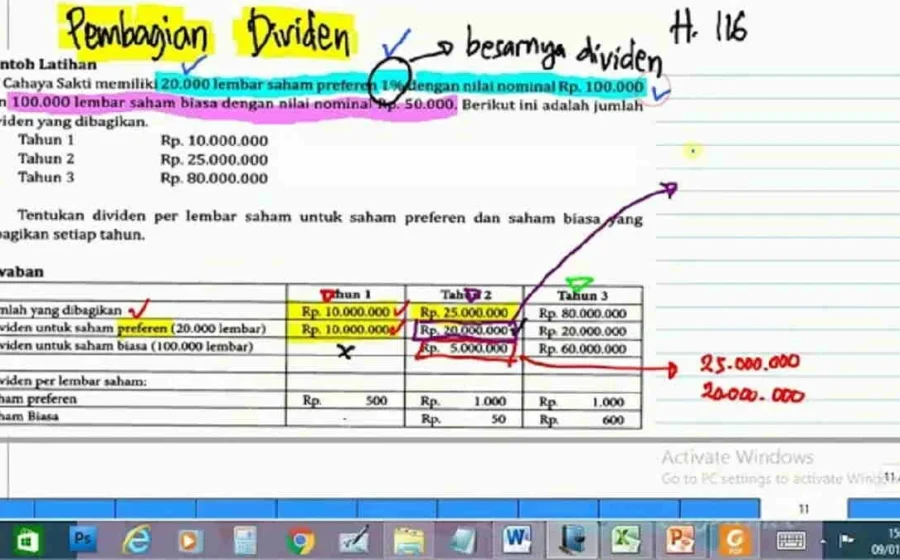 Pembagian Dividen
→ besarnya dividen
H. 116
ntoh Latihan
Cahaya Sakti memiliki 20.000 lembar saham preferen 1% dengan nilai nominal Rp. 100.000
n 100.000 lembar saham biasa dengan nilai nominal Rp. 50.000. Berikut ini adalah jumlah
viden yang dibagikan.
Tahun 1 Rp. 10.000.000
Tahun 2 Rp. 25.000.000
Tahun 3 Rp. 80.000.000
Tentukan dividen per lembar saham untuk saham preferen dan saham biasa yang
bagikan setiap tahun.
waban
Tahun 1 Tahun 2 Tahun 3
mlah yang dibagikan Rp. 10.000.000 Rp. 25.000.000 Rp. 80.000.000
viden untuk saham preferen (20.000 lembar) Rp. 10.000.000 Rp. 20.000.000 Rp. 20.000.000
viden untuk saham biasa (100.000 lembar) x Rp. 5.000.000 Rp. 60.000.000
25.000.000
viden per lembar saham:
20.000.000
ham preferen Rp. 500 Rp. 1.000 Rp. 1.000
ham Biasa - Rp. 50 Rp. 600
Activate Windows
Go to PC settings to activate Windows
11
Ps
W
X
P
15
09/01